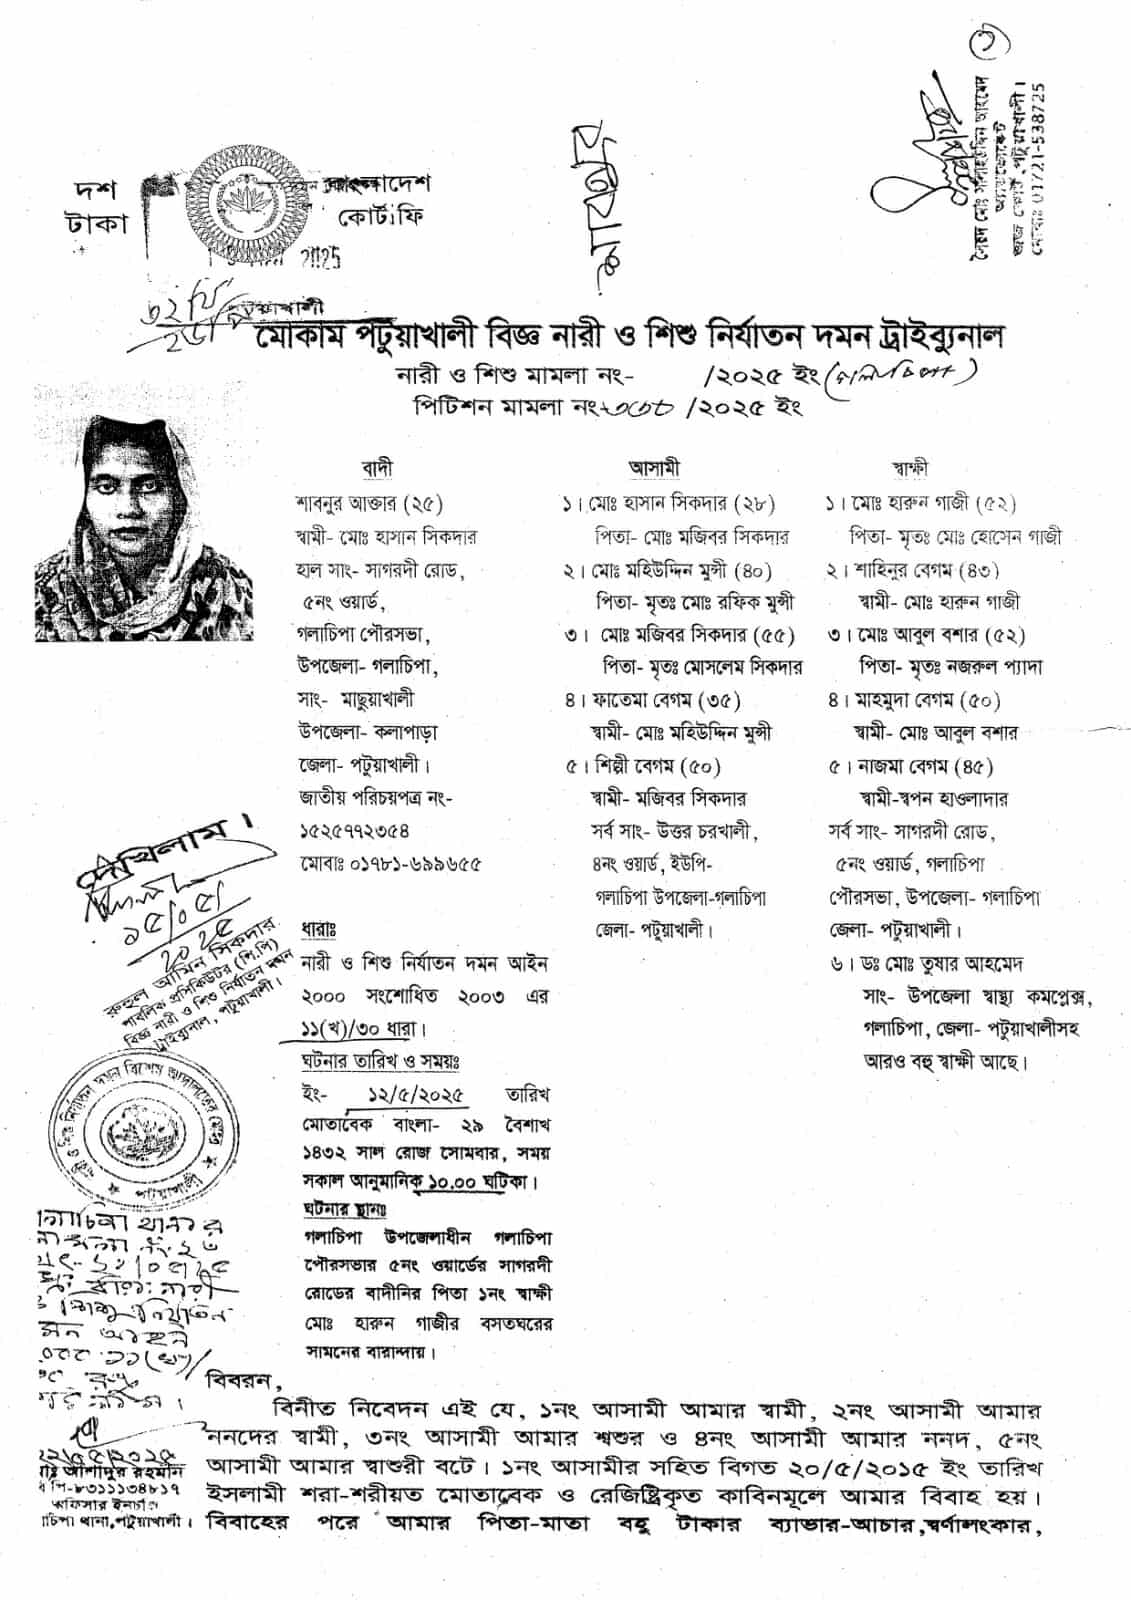 দশ
টাকা
বাংলাদেশ
কোর্ট ফি
2025
পটুয়াখালী
সৈয়দ মোঃ সালাহউদ্দিন আহমেদ
এ্যাডভোকেট
জজ কোর্ট, পটুয়াখালী।
মোবাঃ 01721-538725
মোকাম পটুয়াখালী বিজ্ঞ নারী ও শিশু নির্যাতন দমন ট্রাইব্যুনাল
নারী ও শিশু মামলা নং- /২০২৫ ইং (গলাচিপা)
পিটিশন মামলা নং- /২০২৫ ইং
বাদী
শাবনুর আক্তার (২৫)
স্বামী- মোঃ হাসান সিকদার
হাল সাং- সাগরদী রোড,
৫নং ওয়ার্ড,
গলাচিপা পৌরসভা,
উপজেলা- গলাচিপা,
সাং- মাছুয়াখালী
উপজেলা- কলাপাড়া
জেলা- পটুয়াখালী।
জাতীয় পরিচয়পত্র নং-
১৫২৫৭৭২৩৫৪
মোবাঃ ০১৭৮১-৬৯৯৬৫৫
আসামী
১। মোঃ হাসান সিকদার (২৮)
পিতা- মোঃ মজিবর সিকদার
২। মোঃ মহিউদ্দিন মুন্সী (৪০)
পিতা- মৃতঃ মোঃ রফিক মুন্সী
৩। মোঃ মজিবর সিকদার (৫৫)
পিতা- মৃতঃ মোসলেম সিকদার
৪। ফাতেমা বেগম (৩৫)
স্বামী- মোঃ মহিউদ্দিন মুন্সী
৫। শিল্পী বেগম (৫০)
স্বামী- মজিবর সিকদার
সর্ব সাং- উত্তর চরখালী,
৪নং ওয়ার্ড, ইউপি-
গলাচিপা উপজেলা-গলাচিপা
জেলা- পটুয়াখালী।
স্বাক্ষী
১। মোঃ হারুন গাজী (৫২)
পিতা- মৃতঃ মোঃ হোসেন গাজী
২। শাহিনুর বেগম (৪৩)
স্বামী- মোঃ হারুন গাজী
৩। মোঃ আবুল বশার (৫২)
পিতা- মৃতঃ নজরুল প্যাদা
৪। মাহমুদা বেগম (৫০)
স্বামী- মোঃ আবুল বশার
৫। নাজমা বেগম (৪৫)
স্বামী-স্বপন হাওলাদার
সর্ব সাং- সাগরদী রোড,
৫নং ওয়ার্ড, গলাচিপা
পৌরসভা, উপজেলা- গলাচিপা
জেলা- পটুয়াখালী।
৬। ডঃ মোঃ তুষার আহমেদ
সাং- উপজেলা স্বাস্থ্য কমপ্লেক্স,
গলাচিপা, জেলা- পটুয়াখালীসহ
আরও বহু স্বাক্ষী আছে।
দেখিলাম।
১৫/০৫/
২০২৫
রুহুল আমিন সিকদার
পাবলিক প্রসিকিউটর (পি.পি)
বিজ্ঞ নারী ও শিশু নির্যাতন দমন
ট্রাইব্যুনাল, পটুয়াখালী।
ধারাঃ
নারী ও শিশু নির্যাতন দমন আইন
২০০০ সংশোধিত ২০০৩ এর
১১(খ)/৩০ ধারা।
ঘটনার তারিখ ও সময়ঃ
ইং- ১২/৫/২০২৫ তারিখ
মোতাবেক বাংলা- ২৯ বৈশাখ
১৪৩২ সাল রোজ সোমবার, সময়
সকাল আনুমানিক ১০.০০ ঘটিকা।
ঘটনার স্থানঃ
গলাচিপা উপজেলাধীন গলাচিপা
পৌরসভার ৫নং ওয়ার্ডের সাগরদী
রোডের বাদীনির পিতা ১নং স্বাক্ষী
মোঃ হারুন গাজীর বসতঘরের
সামনের বারান্দায়।
পটুয়াখালী
থানার
নারী
নির্যাতন
১১(খ)/
আশাদুর রহমান
পি-৮৩১১১৩৪৮১৭
অফিসার ইনচার্জ
চিপা থানা, পটুয়াখালী।
বিবরন,
বিনীত নিবেদন এই যে, ১নং আসামী আমার স্বামী, ২নং আসামী আমার
ননদের স্বামী, ৩নং আসামী আমার শ্বশুর ও ৪নং আসামী আমার ননদ, ৫নং
আসামী আমার স্বাশুরী বটে। ১নং আসামীর সহিত বিগত ২০/৫/২০১৫ ইং তারিখ
ইসলামী শরা-শরীয়ত মোতাবেক ও রেজিষ্ট্রিকৃত কাবিনমূলে আমার বিবাহ হয়।
বিবাহের পরে আমার পিতা-মাতা বহু টাকার ব্যাভার-আচার,স্বর্ণালংকার,